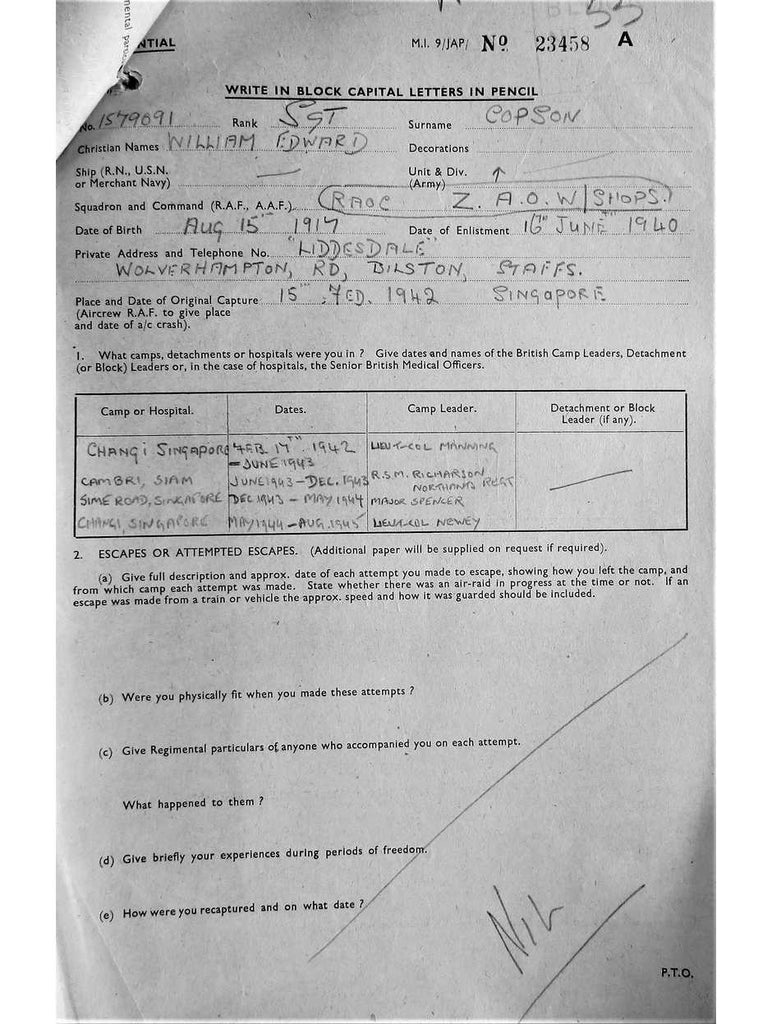 mental part
NTIAL
M.I. 9/JAP/ No 23458 A
WRITE IN BLOCK CAPITAL LETTERS IN PENCIL
No. 1579091 Rank SGT Surname COPSON
Christian Names WILLIAM EDWARD Decorations
Ship (R.N., U.S.N. or Merchant Navy) — Unit & Div. (Army) ↑
Squadron and Command (R.A.F., A.A.F.) (RAOC Z. A.O. W/SHOPS.)
Date of Birth AUG 15TH 1917 Date of Enlistment 16TH JUNE 1940
Private Address and Telephone No. "LIDDESDALE"
WOLVERHAMPTON, RD, BILSTON, STAFFS.
Place and Date of Original Capture 15TH FEB. 1942 SINGAPORE
(Aircrew R.A.F. to give place
and date of a/c crash).
1. What camps, detachments or hospitals were you in ? Give dates and names of the British Camp Leaders, Detachment
(or Block) Leaders or, in the case of hospitals, the Senior British Medical Officers.
Camp or Hospital. Dates. Camp Leader. Detachment or Block Leader (if any).
CHANGI SINGAPORE FEB. 17TH. 1942 – JUNE 1943 LIEUT-COL MANNING
CAMBRI, SIAM JUNE 1943 – DEC. 1943 R.S.M. RICHARSON NORTHANTS REGT
SIME ROAD, SINGAPORE DEC 1943 – MAY 1944 MAJOR SPENCER
CHANGI, SINGAPORE MAY 1944 – AUG. 1945 LIEUT-COL NEWEY
2. ESCAPES OR ATTEMPTED ESCAPES. (Additional paper will be supplied on request if required).
(a) Give full description and approx. date of each attempt you made to escape, showing how you left the camp, and
from which camp each attempt was made. State whether there was an air-raid in progress at the time or not. If an
escape was made from a train or vehicle the approx. speed and how it was guarded should be included.
(b) Were you physically fit when you made these attempts ?
(c) Give Regimental particulars of anyone who accompanied you on each attempt.
What happened to them ?
(d) Give briefly your experiences during periods of freedom.
(e) How were you recaptured and on what date ?
NIL
P.T.O.